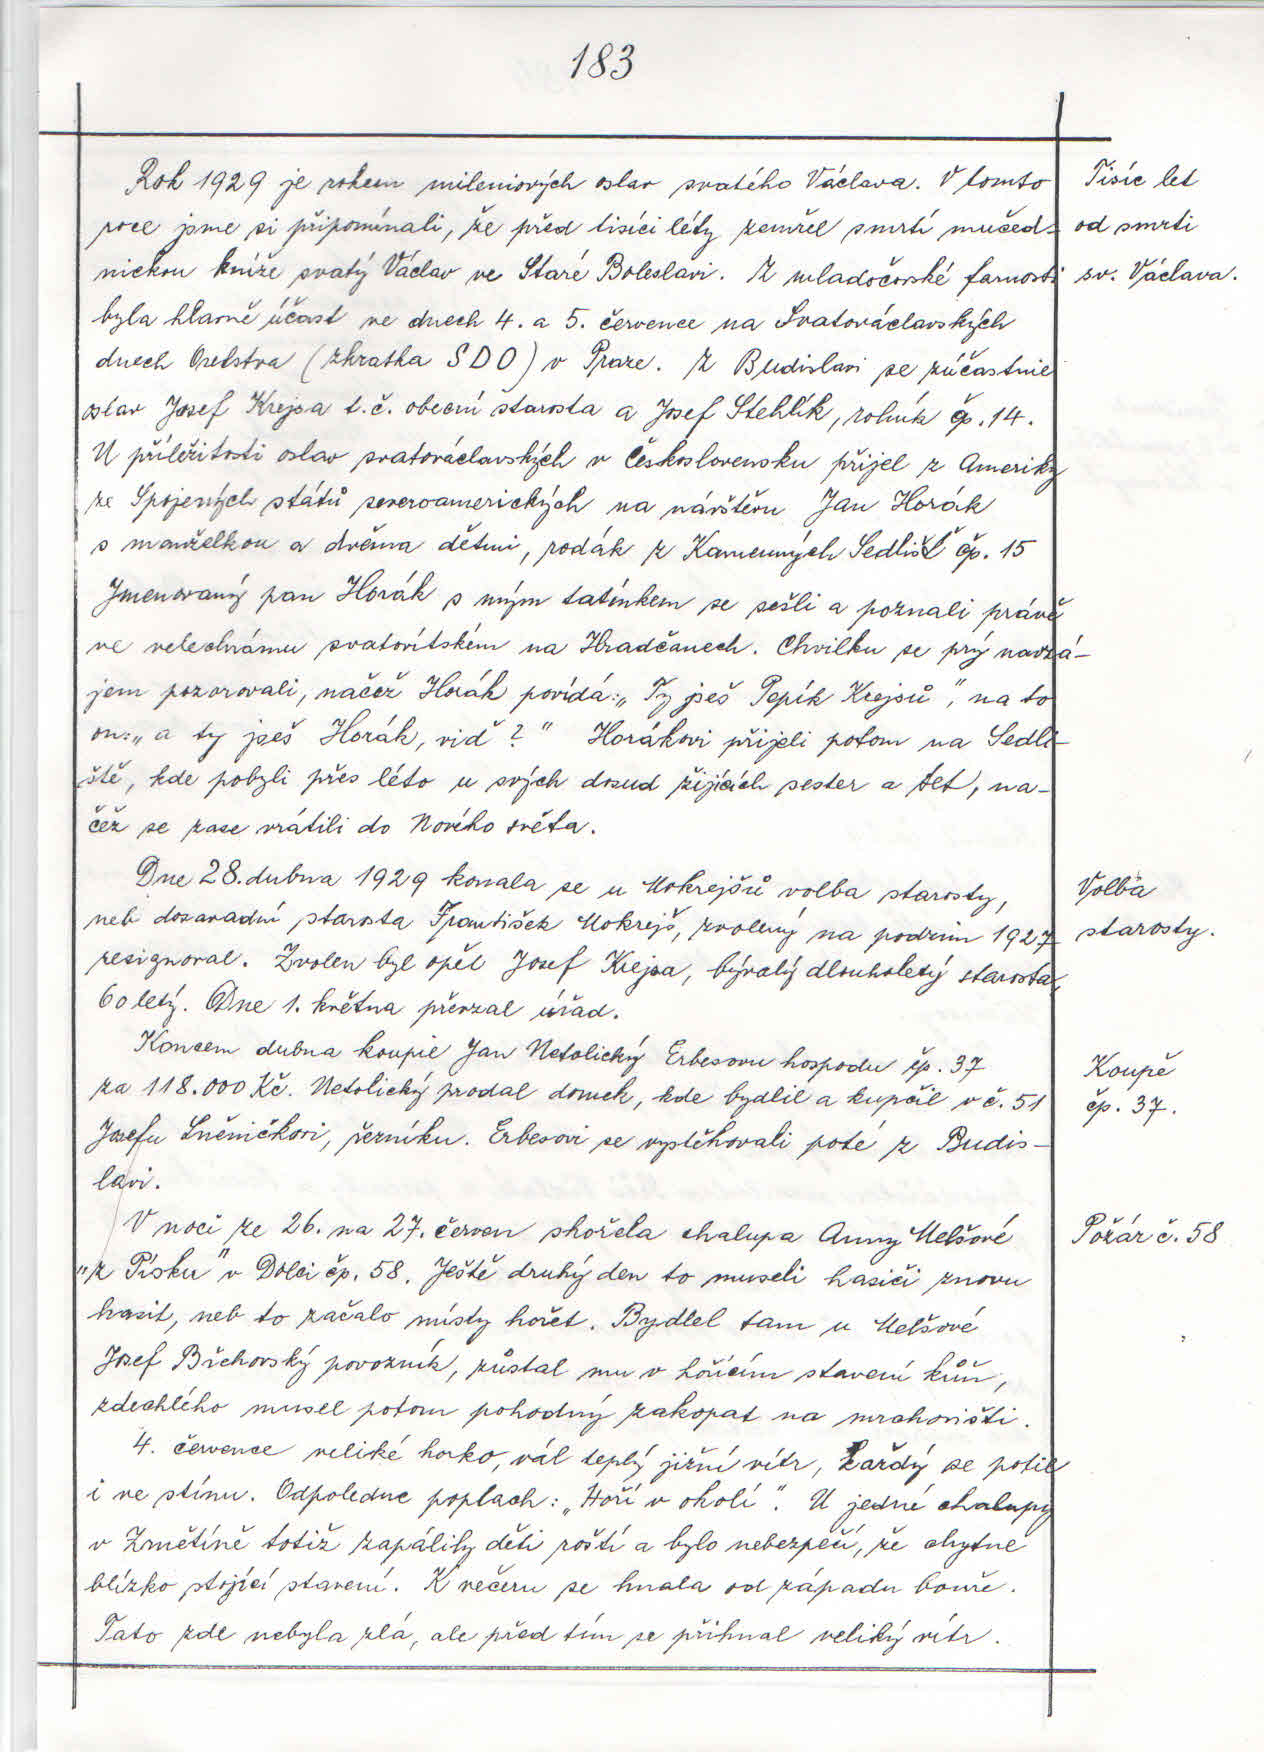 183
Rok 1929 je rokem mileniových oslav svatého Václava. V tomto
Tisíc let
roce jsme si připomínali, že před tisíci léty zemřel smrtí mučed-
od smrti
nickou kníže svatý Václav ve Staré Boleslavi. Z mladočovské farnosti
sv. Václava.
byla hlavně účast ve dnech 4. a 5. července na Svatováclavských
dnech Orelstva (zkratka SDO) v Praze. Z Budislavi se zúčastnil
oslav Josef Krejsa t.č. obecní starosta a Josef Stehlík, rolník čp. 14.
U příležitosti oslav svatováclavských v Československu přijel z Ameriky
ze Spojených států severoamerických na návštěvu Jan Horák
s manželkou a dvěma dětmi, rodák z Kamenných Sedlišť čp. 15
Jmenovaný pan Horák s mým tatínkem se sešli a poznali právě
ve velechrámu svatovítském na Hradčanech. Chvilku se prý navzá-
jem pozorovali, načež Horák povídá: „Ty jseš Pepík Krejsů", na to
on: „a ty jseš Horák, viď?" Horákovi přijeli potom na Sedli-
ště, kde pobyli přes léto u svých dosud žijících sester a tet, na-
čež se zase vrátili do Nového světa.
Dne 28. dubna 1929 konala se u Mokrejšů volba starosty,
Volba
neb dosavadní starosta František Mokrejš, zvolený na podzim 1927
starosty.
resignoval. Zvolen byl opět Josef Krejsa, bývalý dlouholetý starosta,
60 letý. Dne 1. května převzal úřad.
Koncem dubna koupil Jan Netolický Erbesovu hospodu čp. 37
Koupě
za 118.000 Kč. Netolický prodal domek, kde bydlil a kupčil v č. 51
čp. 37.
Josefu Sněničkovi, řezníku. Erbesovi se vystěhovali poté z Budis-
lavi.
V noci ze 26. na 27. červen shořela chalupa Anny Melšové
Požár č. 58
"z Písku" v Dolci čp. 58. Ještě druhý den to museli hasiči znovu
hasit, neb to začalo místy hořet. Bydlel tam u Melšové
Josef Břehovský povozník, zůstal mu v hořícím stavení kůň,
zdechlého musel potom pohodný zakopat na mrahovišti.
4. července veliké horko, vál teplý jižní vítr, každý se potil
i ve stínu. Odpoledne poplach: „Hoří v okolí". U jedné chalupy
v Změtíně totiž zapálily děti roští a bylo nebezpečí, že chytne
blízko stojící stavení. K večeru se hnala od západu bouře.
Tato zde nebyla zlá, ale před tím se přihnal veliký vítr.